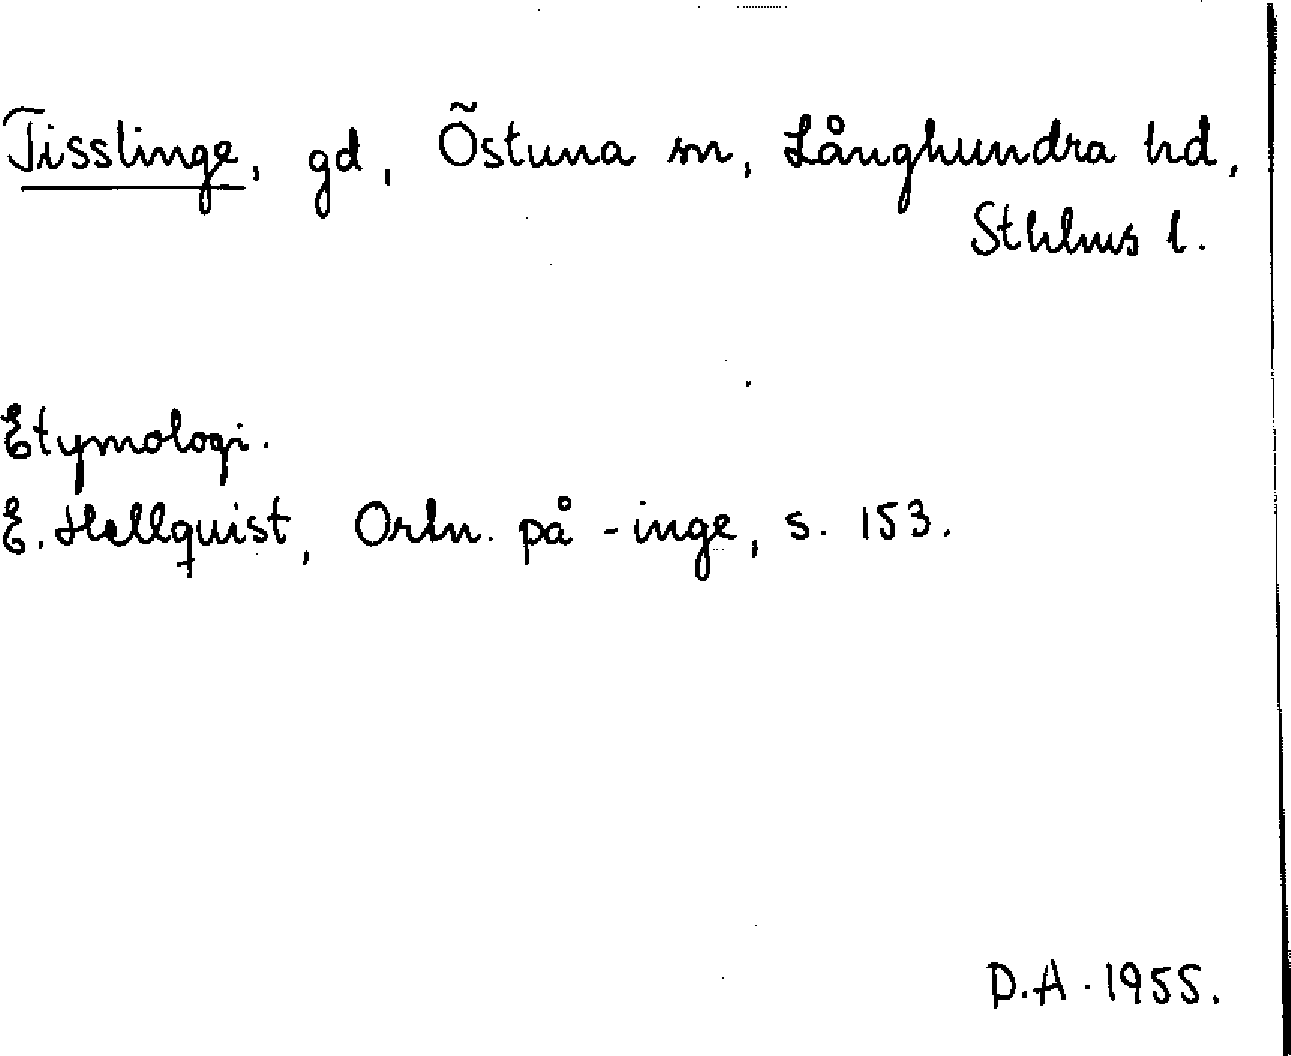 Tisslinge, gd, Östuna sn, Långhundra hd,
Sthlms l.
Etymologi.
E. Hellquist, Ortn. på -inge, s. 153.
D.A. 1955.